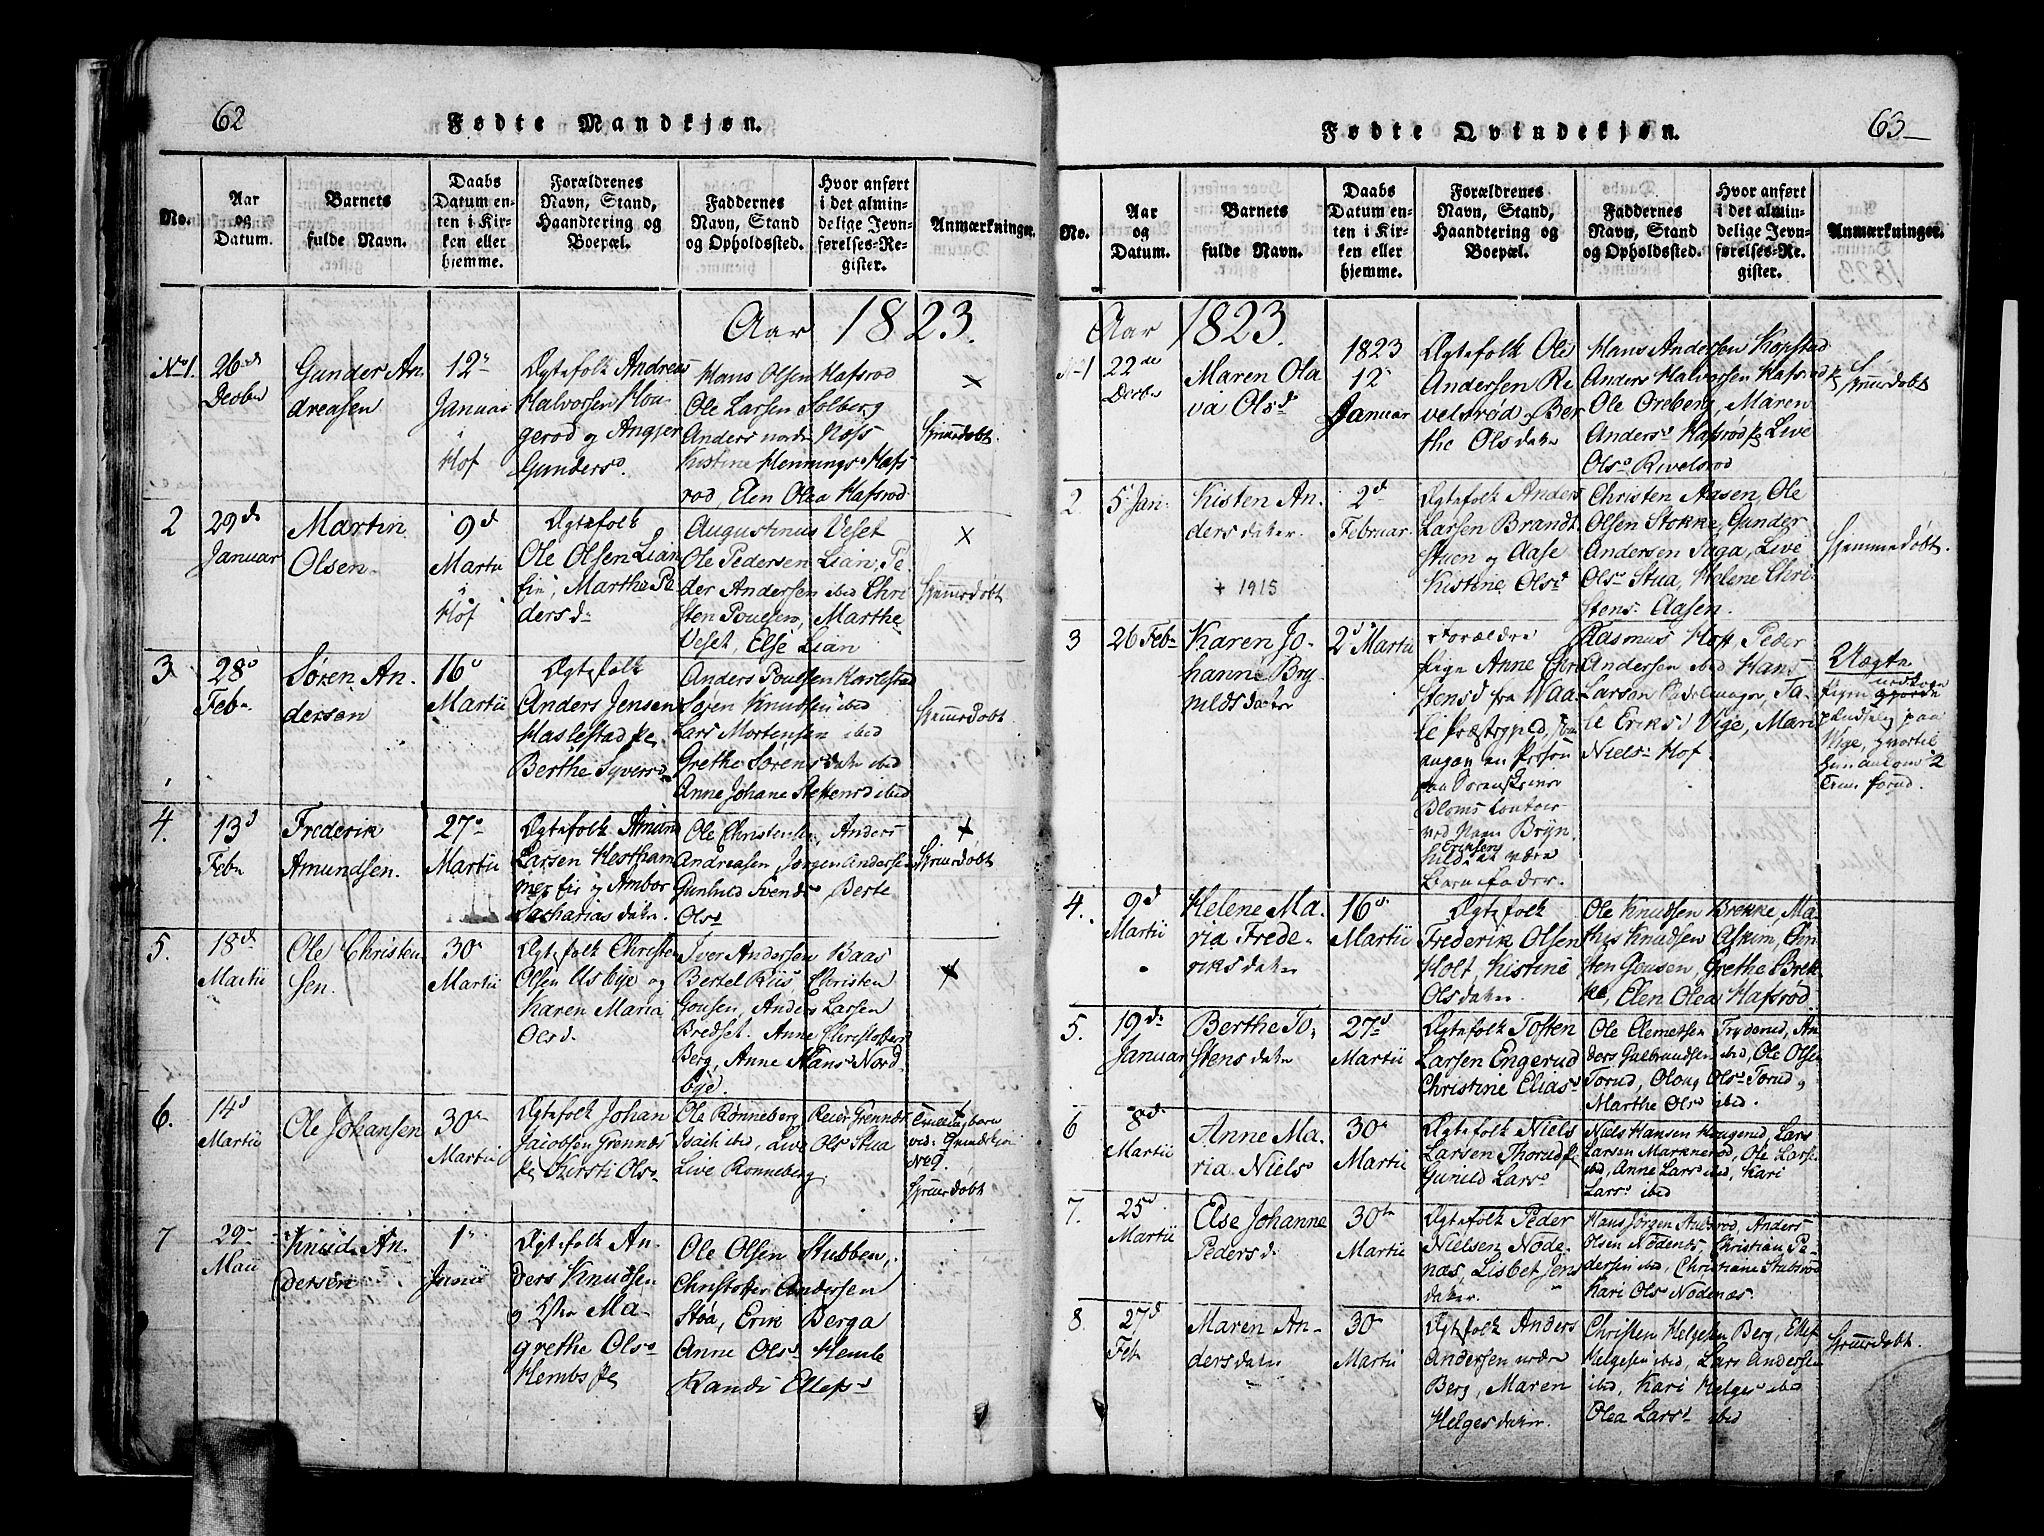 62
Fødte Mandkjøn.
No.
Aar
og
Datum.
Barnets
fulde Navn.
Daabs
Datum en-
ten i Kir-
ken eller
hjemme.
Forældrenes
Navn, Stand,
Haandtering og
Boepæl.
Faddernes
Navn, Stand
og Opholdssted.
Hvor anført
i det almin-
delige Jevn-
førelses-Re-
gister.
Anmærkninger.
Aar 1823.
No 1.
26de
Decbr
Gunder An
dreasen
12te
Januar
i
Hof
Ægtefolk Andreas
Halvorsen Hou
gerod og
Gundersd.
Hans Olsen Hafsrod
Ole Larsen Solberg
Anders nordre Høfs
Kistine Hennings Hafs
rod, Elen Olea Hafsrod
×
Hjemedøbt.
2
29de
Januar
Martin
Olsen
9d
Martii
i
Hof
Ægtefolk
Ole Olsen Lian
Marthe Pe
dersd
Augustinus Veset
Ole Pedersen Lian, Pe
der Andersen ibid Chri
sten Poulsen, Marthe
Veset, Else Lian
×
Hjemmedøbt
3
28d
Febr
Søren An
dersen
16d
Martii
Ægtefolk
Anders Jensen
Haslestad
Berthe Syversd
Anders Poulsen Harlestad
Søren Knudsen ibid
Lars Mortensen ibid
Grethe Sørensdater ibid
Anne Johane Steffensd ibid
Hjemedøbt
4.
13d
Febr
Frederik
Amundsen.
27de
Martii
Ægtefolk Amund
Larsen Hestham
mer og Ambor
Zachariasdater.
Ole Christensen, Anders
Andreasen Jørgen Andersen
Gunhild Svends Berte
Olsd
+
Hjemedøbt
5.
18de
Martii
Ole Christen
sen.
30te
Martii
Ægtefolk Christen
Olsen Asbye og
Karen Maria
Olsd.
Iver Andersen Baas
Bertel Riis Christen
Gousen, Anders Larsen
Bredset. Anne Christophers
Berg, Anne Hans Nord
bye.
6.
14d
Martii
Ole Johansen
30te
Martii
Ægtefolk Johan
Jacobsen Grennes
Kirsti Ols
Ole Rønneberg Reier Grennes
Isach ibid, Live Ols Stua
Live Rønneberg
Tvillingbarn
No 9.
Hjemedøbt
7
29de
Maii
Knud An
dersen
1te
Junii
Ægtefolk An
ders Knudsen
og Ma
grethe Ols
Hembs
Ole Olsen Stubben,
Christopher Andersen
Støa, Erik Berga
Anne Olsd Hemb
Randi Ellefsd
63
Fødte Qvindekjøn.
No.
Aar
og
Datum.
Barnets
fulde Navn.
Daabs
Datum en-
ten i Kir-
ken eller
hjemme.
Forældrenes
Navn, Stand,
Haandtering og
Boepæl.
Faddernes
Navn, Stand
og Opholdssted.
Hvor anført
i det almin-
delige Jevn-
førelses-Re-
gister.
Anmærkninger.
Aar 1823.
1
22de
Decbr
Maren Ola
va Olsd
1823
12te
Januar
Ægtefolk Ole
Andersen Re
velsrød og Ber
the Olsdater
Hans Andersen Kopstad
Anders Halvorsen Hafsrod
Ole Oreberg, Maren
Andersd Hafsrod Live
Olsd Rivelsrod
Hjemedøbt
2.
5 Jan
Kisten An
dersdater.
+ 1915
2d
Februar
Ægtefolk Anders
Larsen Brandt
stuen og Aase
Kistine Olsd
Christen Aasen, Ole
Olsen Stokke, Gunder
Andersen Saga, Live
Olsd Stua, Helene Chri
stens Aasen.
Hjemmedøbt.
3
26 Febr
Karen Jo
hanne Bry
nildsdater
2d Martii
Forældre
Pige Anne Chri
stensd fra Vaa
le Præstegield,
angav en Person
paa
Bloms Contoir
ved Navn Bryn
hild Eriksen at være
Barnefader.
Rasmus Hoff Peder
Andersen ibid Hans
Larsen Ta
le Eriksd Vige, Mari
Niels Hof
Uægte
paa
Vige, hvortil
2
4.
9d
Martii
Helene Ma
ria Frede
riksdater
16de
Martii
Ægtefolk
Frederik Olsen
Holt, Kistine
Olsdater.
Ole Knudsen Brekke, Ma
this Knudsen Askim, Chri
sten Gousen, Grethe Brek
ke, Elen Olea Hafsrød
5.
19de
Januar
Berthe To
stensdater
27d
Martii
Ægtefolk Tosten
Larsen Engerud
Christine Elias
Ole Clemetsen Fryderud, An
ders Gulbrandsen ibid, Ole Olsen
Torud, Oloug Ols Torud og
Marthe Olsd ibid.
6
8de
Martii
Anne Ma
ria Nielsd
30te
Martii
Ægtefolk Niels
Larsen Thorud
Gunild Larsd
Niels Hansen Hougerud, Lars
Larsen Marknerød, Ole Larsen
ibid, Anne Lars ibid, Kari
Larsd ibid
7.
25d
Martii
Else Johanne
Pedersd
30te
Martii
Ægtefolk Peder
Nielsen Node
næs, Lisbet Jens
dater.
Hans Jørgen Stubsrød, Anders
Olsen Nodenes, Christian Pe
dersen ibid, Christiane Stubsrød
Kari Ols Nodenæs.
8.
27d
Feb
Maren An
dersdater
30te
Martii
Ægtefolk Anders
Andersen nedre
Berg, Maren
Helgesdater.
Christen Helgesen Berg, Ellef
Helgesen ibid, Lars Andersen
ibid, Kari Helges ibid
Olea Larsd ibid
Hjemmedøbt.